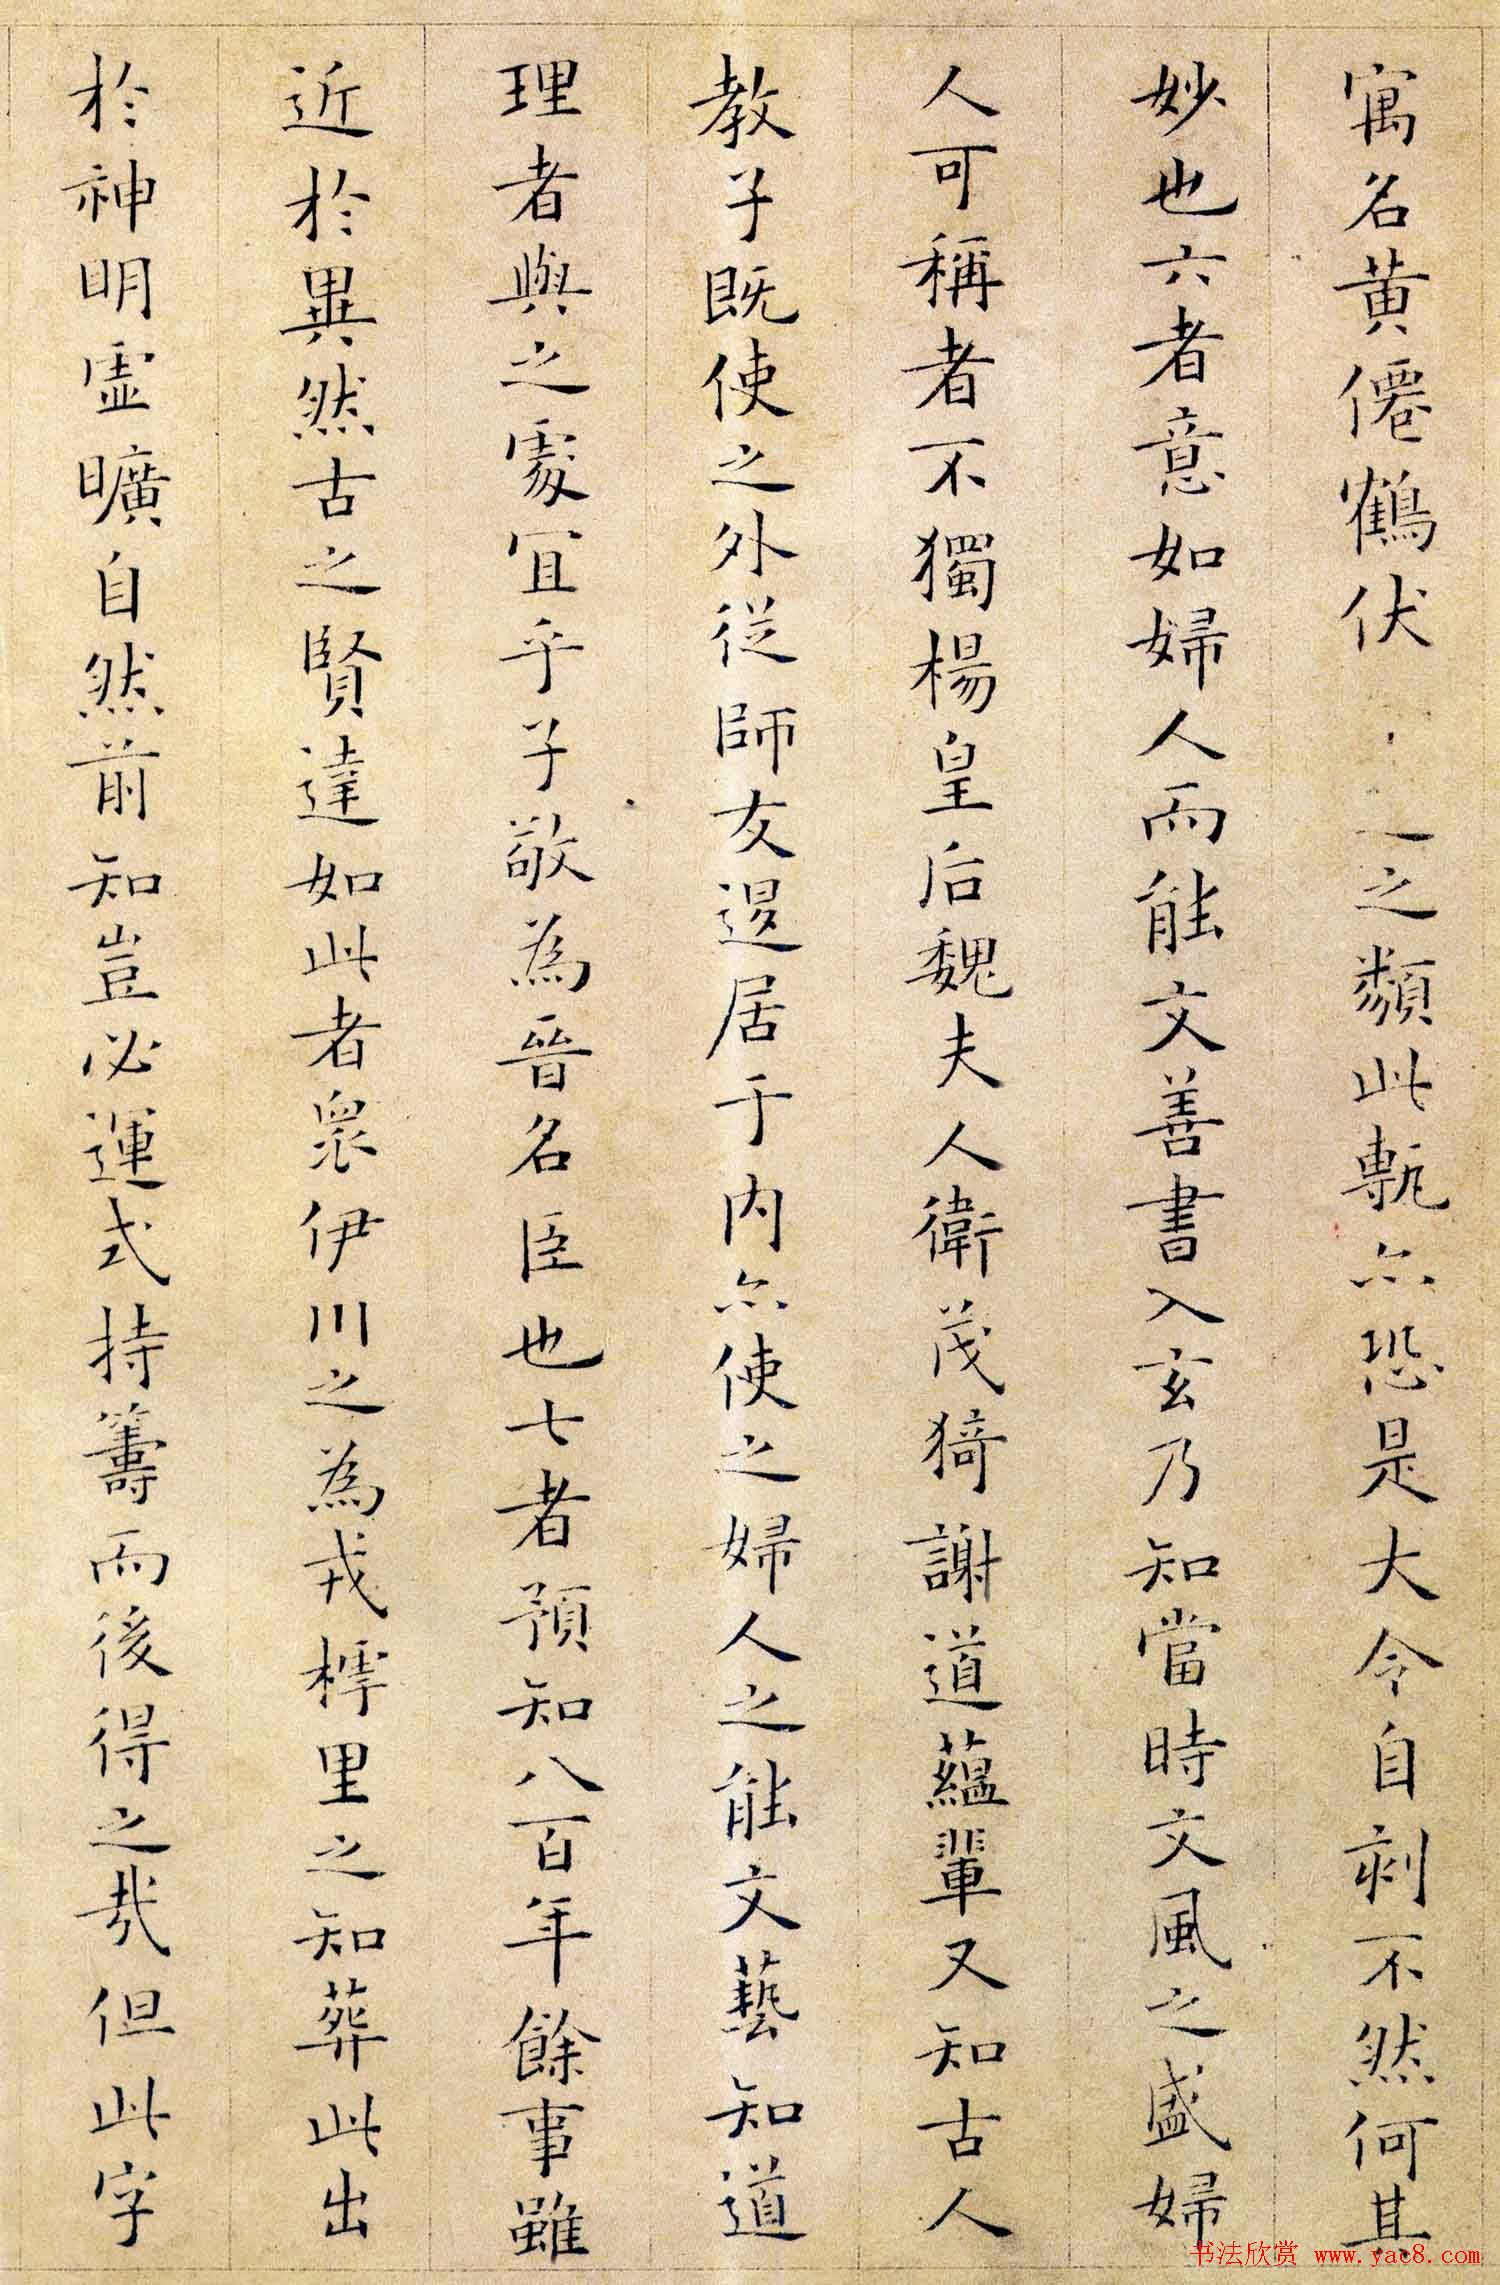 寓名黄僊鶴伏之類此甎亦恐是大令自刻不然何其
妙也六者意如婦人而能文善書入玄乃知當時文風之盛婦
人可稱者不獨楊皇后魏夫人衛茂猗謝道蘊輩又知古人
教子既使之外從師友退居于内亦使之婦人之能文藝知道
理者與之處宜乎子敬為晉名臣也七者預知八百年餘事雖
近於異然古之賢達如此者眾伊川之為戎樗里之知葬此出
於神明虛曠自然前知豈必運式持籌而後得之哉但此字
书法欣赏 www.yac8.com